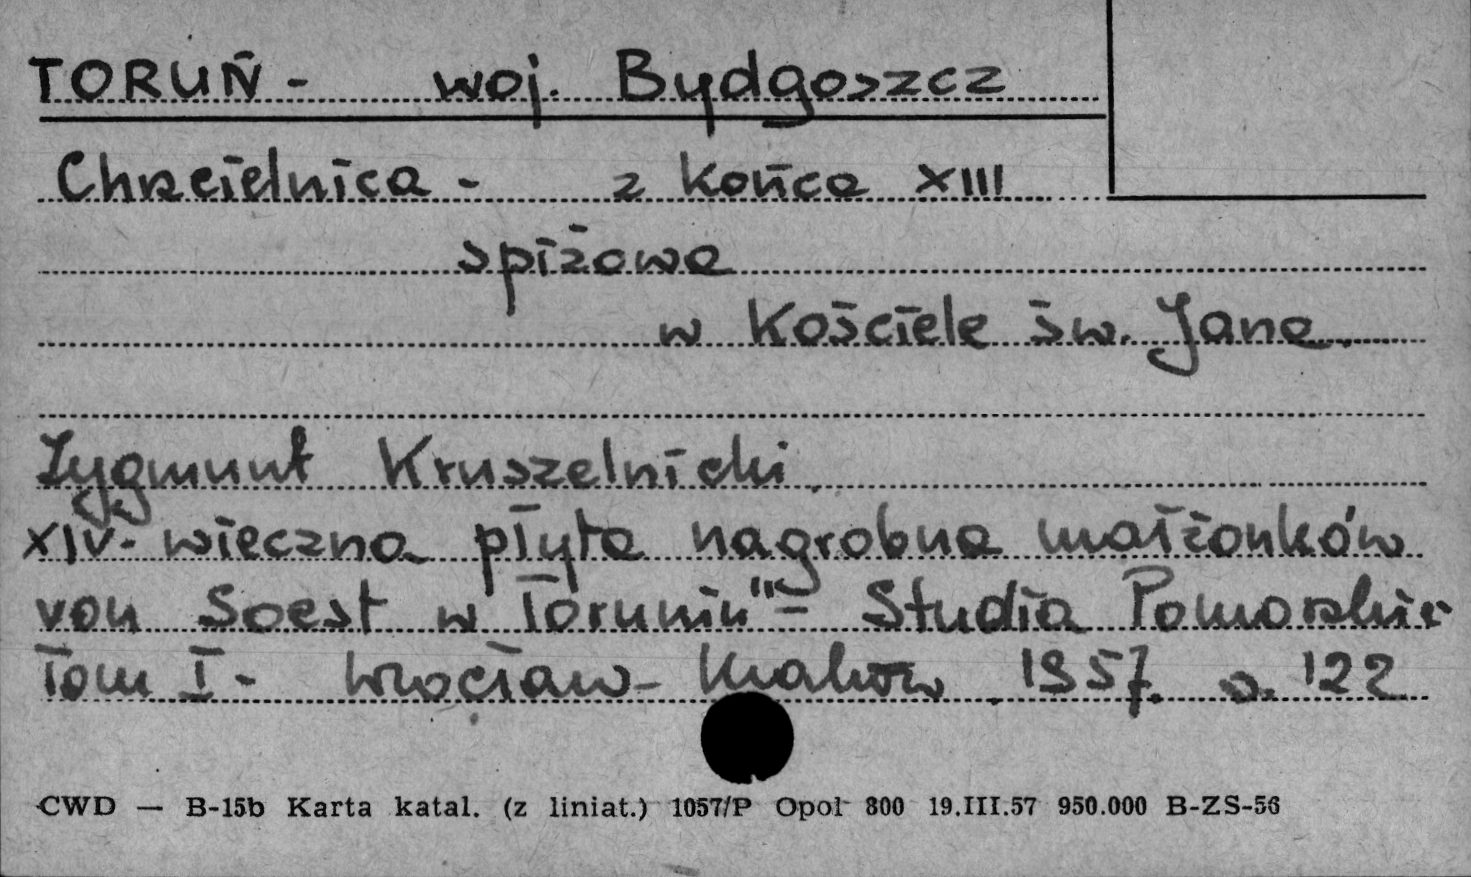 TORUŃ - woj. Bydgoszcz
Chrzcielnica - z końca XIII
spiżowa
w Kościele św. Jana.
Zygmunt Kruszelnicki.
XIV-wieczna płyta nagrobna małżonków
von Soest w Toruniu" = Studia Pomorskie
Tom I - Wrocław - Kraków. 1957. s. 122
CWD — B-15b Karta katal. (z liniat.) 1057/P Opol 800 19.III.57 950.000 B-ZS-56